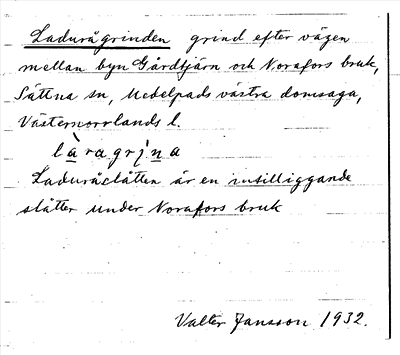 Ladurågrinden grind efter vägen
mellan byn Gårdtjärn och Norafors bruk,
Sättna sn, Medelpads västra domsaga,
Västernorrlands l.
làragrı̣̀na
Laduråslåtten är en intilliggande
slåtter under Norafors bruk
Valter Jansson 1932.